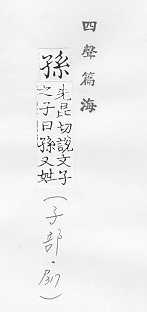 四聲篇海
孫
朱昆切說文子
之子曰孫又姓
(子部．